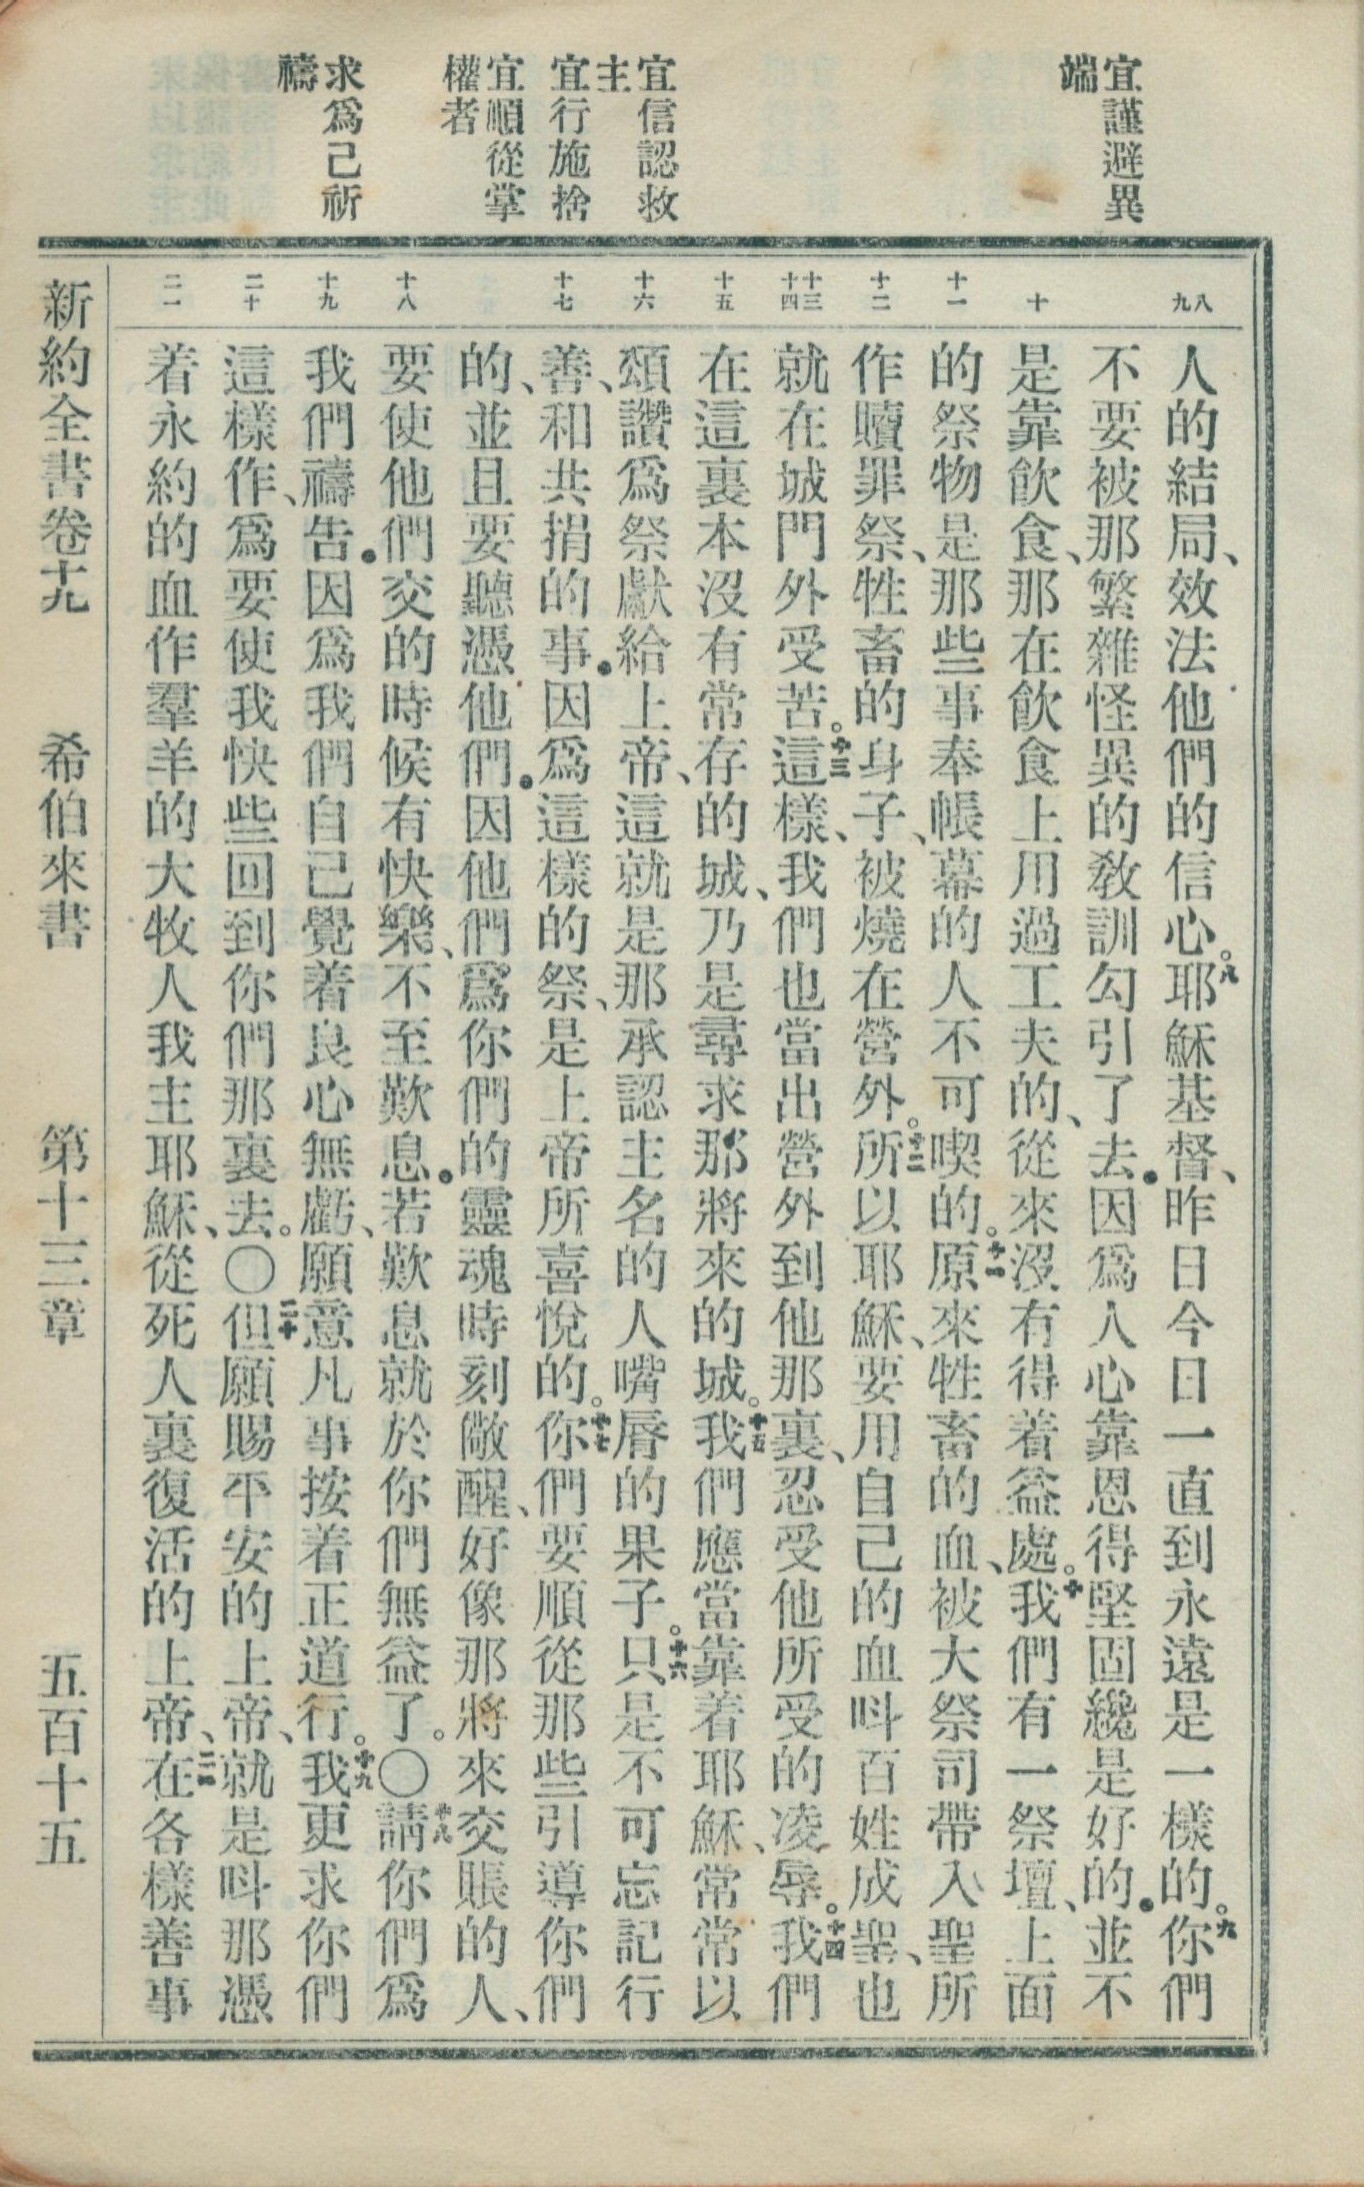 宜謹避異
端
宜信認救
主
宜行施捨
宜順從掌
權者
求爲己祈
禱
八
九
十
十一
十二
十三
十四
十五
十六
十七
十八
十九
二十
二一
人的結局、效法他們的信心。八耶穌基督、昨日今日一直到永遠是一樣的。九你們
不要被那繁雜怪異的教訓勾引了去.因爲人心靠恩得堅固纔是好的.並不
是靠飲食、那在飲食上用過工夫的、從來沒有得着益處。十我們有一祭壇、上面
的祭物是那些事奉帳幕的人不可喫的。十一原來牲畜的血、被大祭司帶入聖所
作贖罪祭、牲畜的身子、被燒在營外。十二所以耶穌、要用自己的血呌百姓成聖、也
就在城門外受苦。十三這樣、我們也當出營外到他那裏、忍受他所受的凌辱。十四我們
在這裏本沒有常存的城、乃是尋求那將來的城。十五我們應當靠着耶穌、常常以
頌讚爲祭獻給上帝、這就是那承認主名的人嘴脣的果子。十六只是不可忘記行
善、和共捐的事.因爲這樣的祭、是上帝所喜悅的。十七你們要順從那些引導你們
的、並且要聽憑他們.因他們爲你們的靈魂時刻儆醒、好像那將來交賬的人、
要使他們交的時候有快樂、不至歎息.若歎息就於你們無益了。〇十八請你們爲
我們禱告.因爲我們自己覺着良心無虧、願意凡事按着正道行。十九我更求你們
這樣作、爲要使我快些回到你們那裏去。〇二十但願賜平安的上帝、就是呌那憑
着永約的血作羣羊的大牧人我主耶穌、從死人裏復活的上帝、二一在各樣善事
新約全書卷十九　希伯來書　第十三章　五百十五